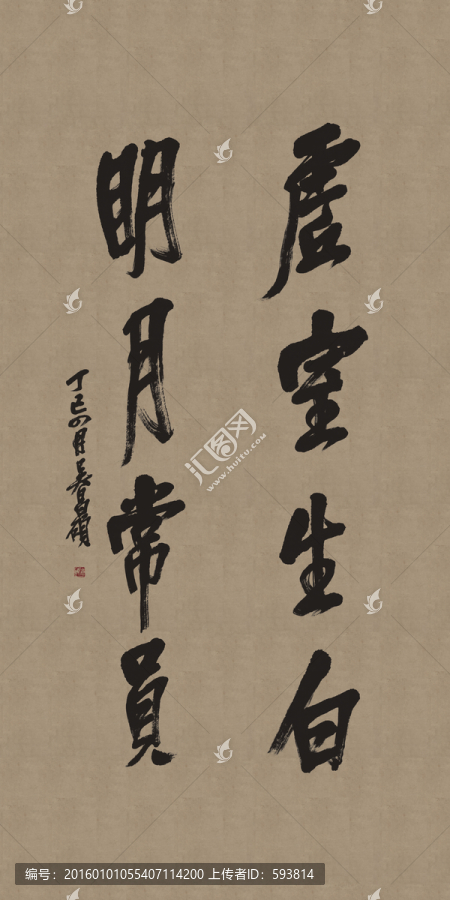 虚室生白
明月常員
丁巳四月吴昌碩
汇图网
www.huitu.com
编号：20160101055407114200 上传者ID：593814